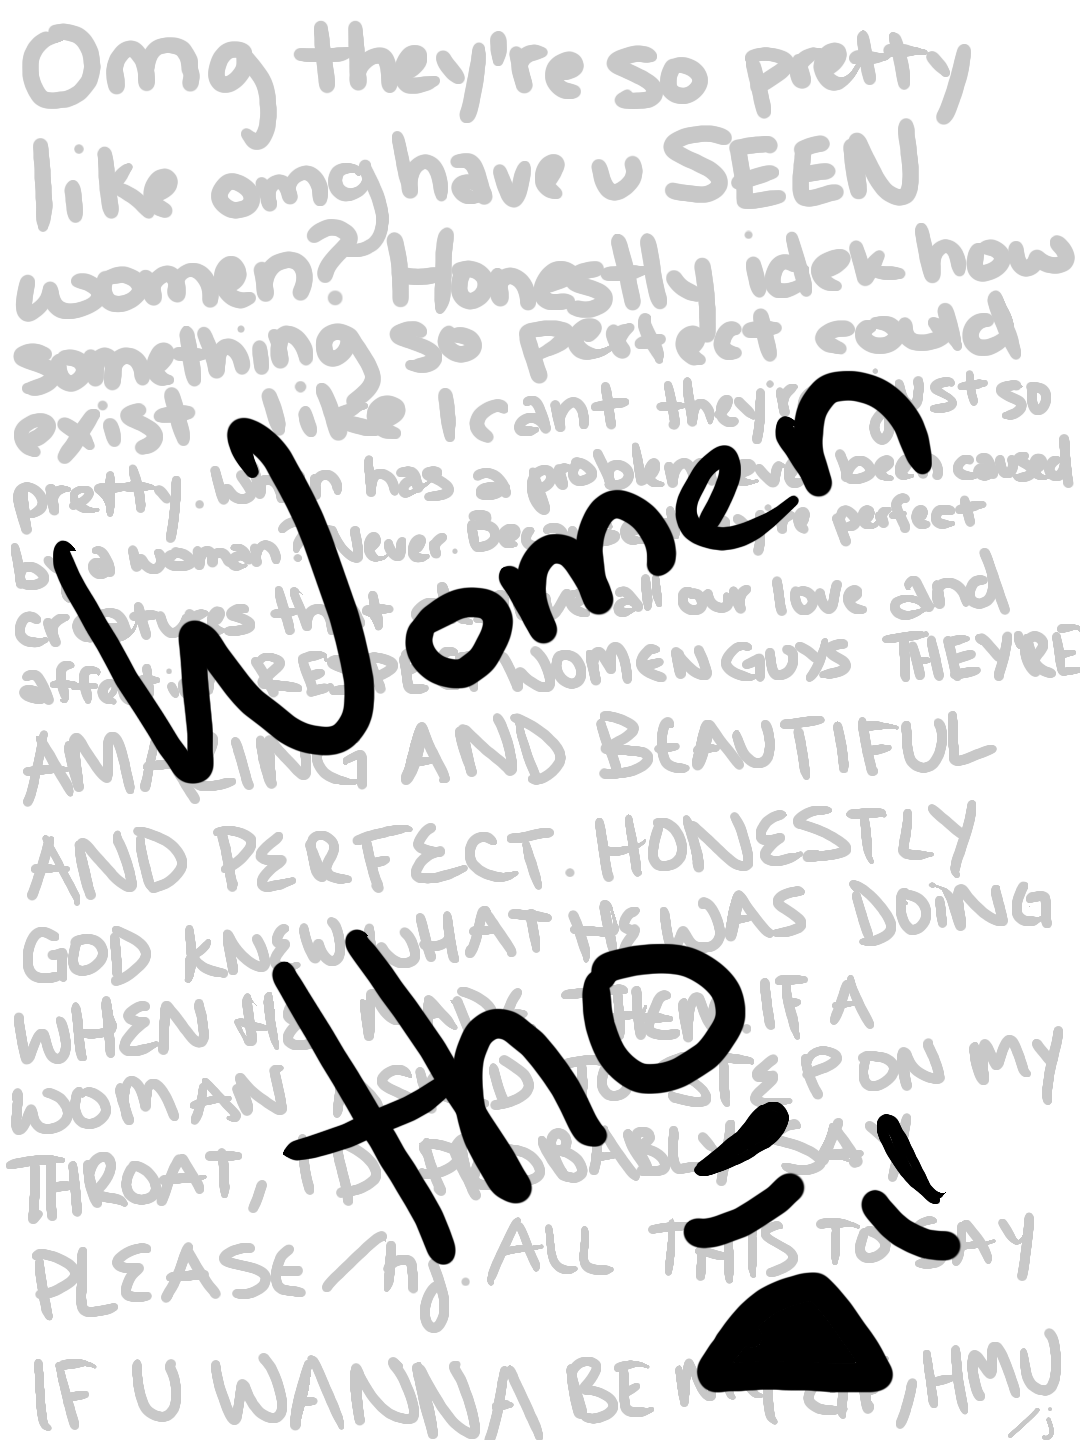 Omg they're so pretty
like omg have u SEEN
women? Honestly idek how
something so perfect could
exist like I cant they're just so
pretty. When has a problem ever been caused
by a woman? Never. Because they're perfect
creatures that deserve all our love and
affection RESPECT WOMEN GUYS THEY'RE
AMAZING AND BEAUTIFUL
AND PERFECT. HONESTLY
GOD KNEW WHAT HE WAS DOING
WHEN HE MADE THEM. IF A
WOMAN ASKED TO STEP ON MY
THROAT, I'D PROBABLY SAY
PLEASE /hj. ALL THIS TO SAY
IF U WANNA BE MY GF, HMU
/j
Women
tho